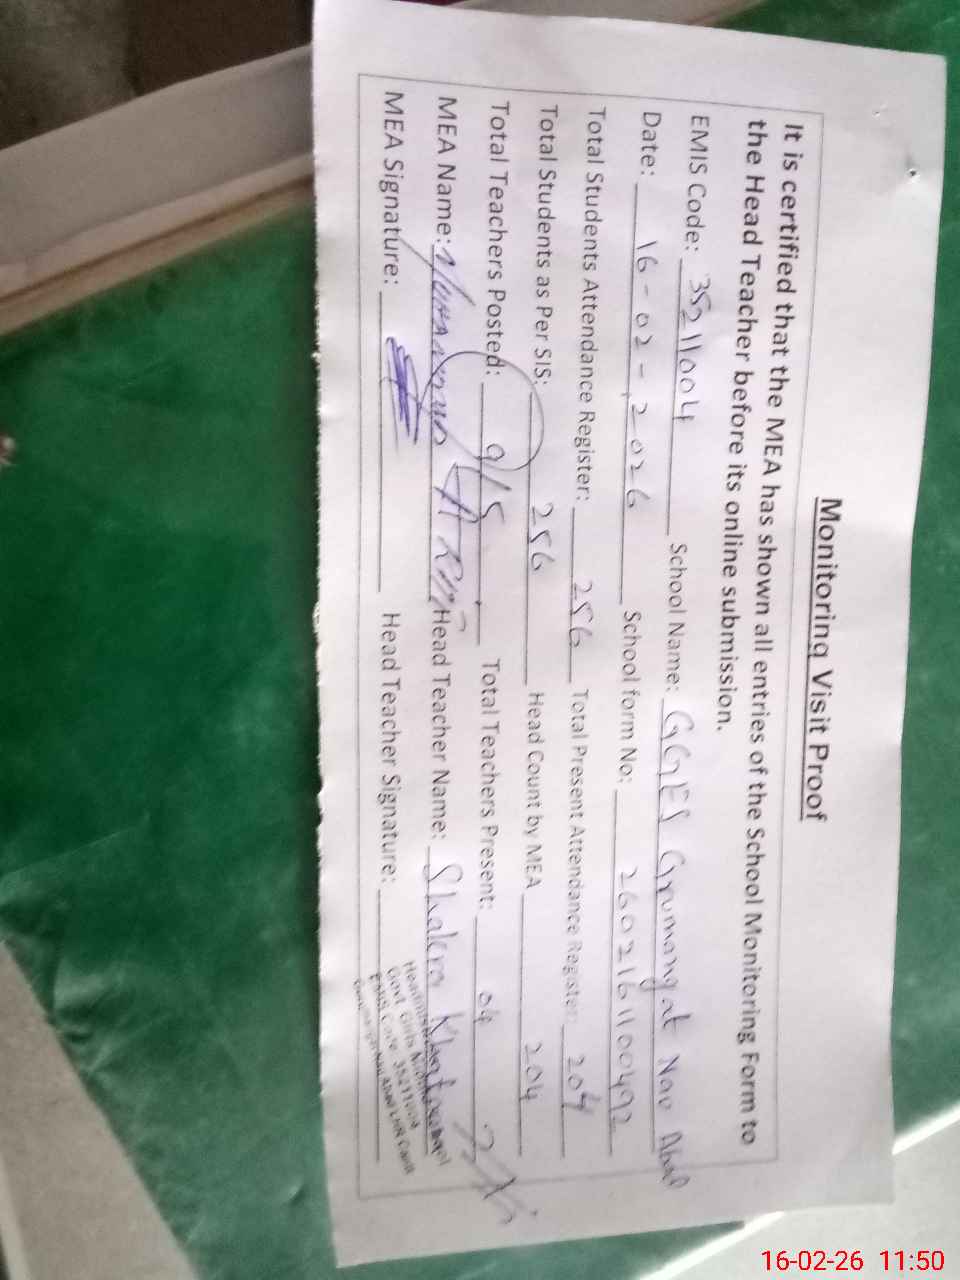 Monitoring Visit Proof
It is certified that the MEA has shown all entries of the School Monitoring Form to
the Head Teacher before its online submission.
EMIS Code: 35211004 School Name: GGES Grumangat Nao Abad
Date: 16-02-2026 School form No: 2602161100492
Total Students Attendance Register: 256 Total Present Attendance Register: 204
Total Students as Per SIS: 256 Head Count by MEA 204
Total Teachers Posted: 9/5 Total Teachers Present: 04
MEA Name: Head Teacher Name: Shakera
MEA Signature: Head Teacher Signature:
Govt. Girls
EMIS Code 35211004
16-02-26 11:50